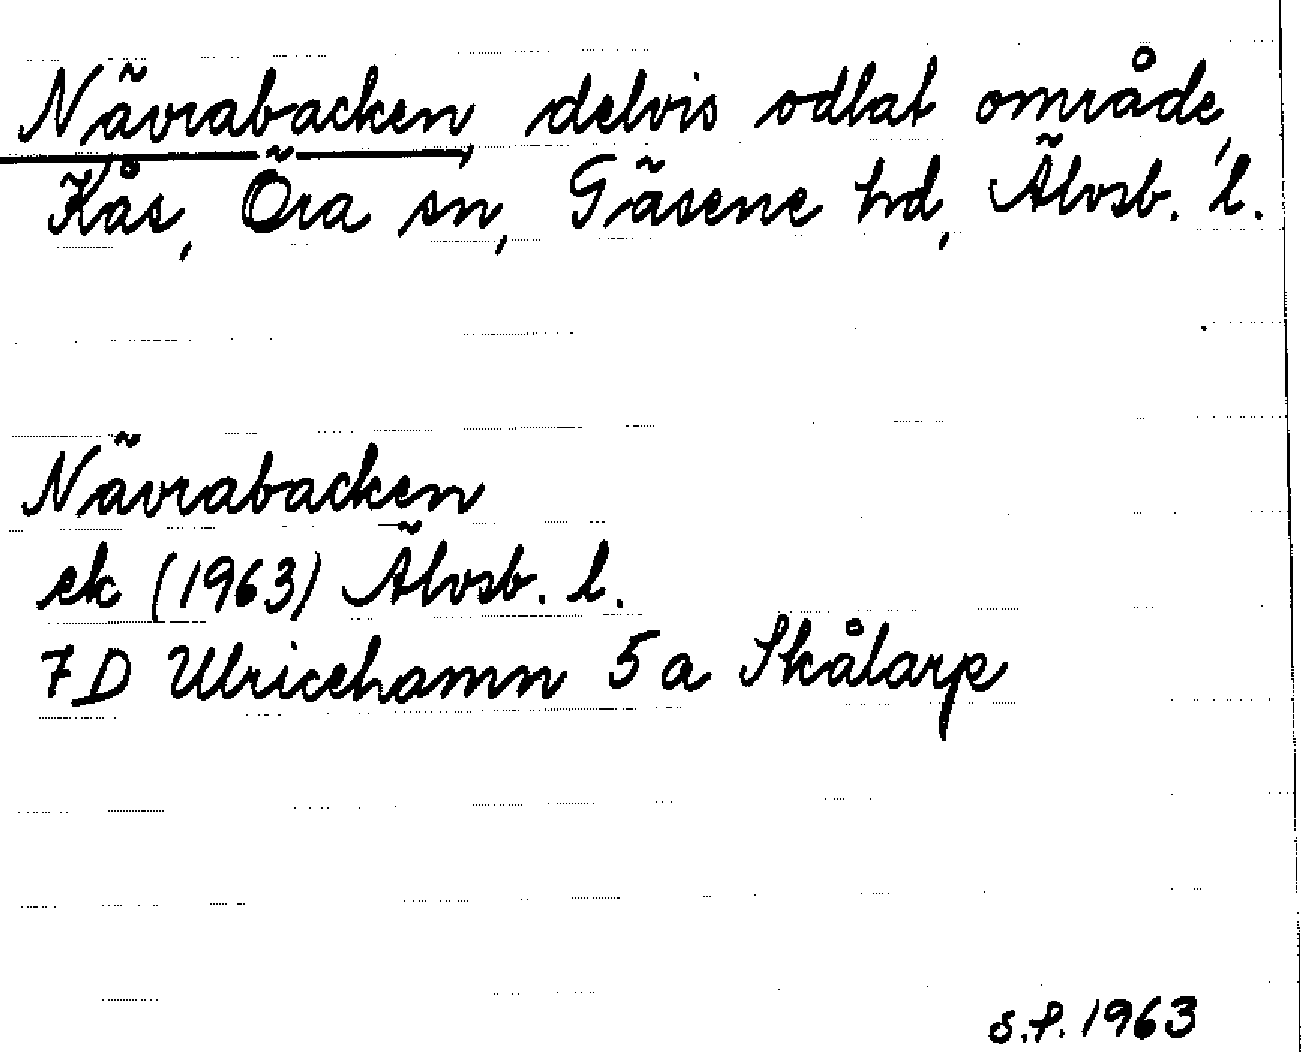 Nävrabacken, delvis odlat område,
Kås, Öra sn, Gäsene hd, Älvsb. l.
Nävrabacken
ek (1963) Älvsb. l.
7D Ulricehamn 5a Skålarp
S.F. 1963